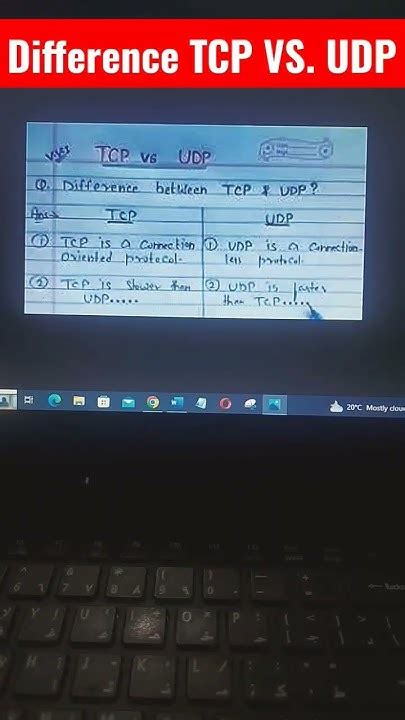 Difference TCP VS. UDP
TCP vs UDP
Q. Difference between TCP & UDP?
Ans→ TCP UDP
① TCP is a connection ① UDP is a connection-
oriented protocol. less protocol.
② TCP is slower then ② UDP is faster
UDP..... then TCP.....
20°C Mostly clou
Backs
Y U O P
H J K L